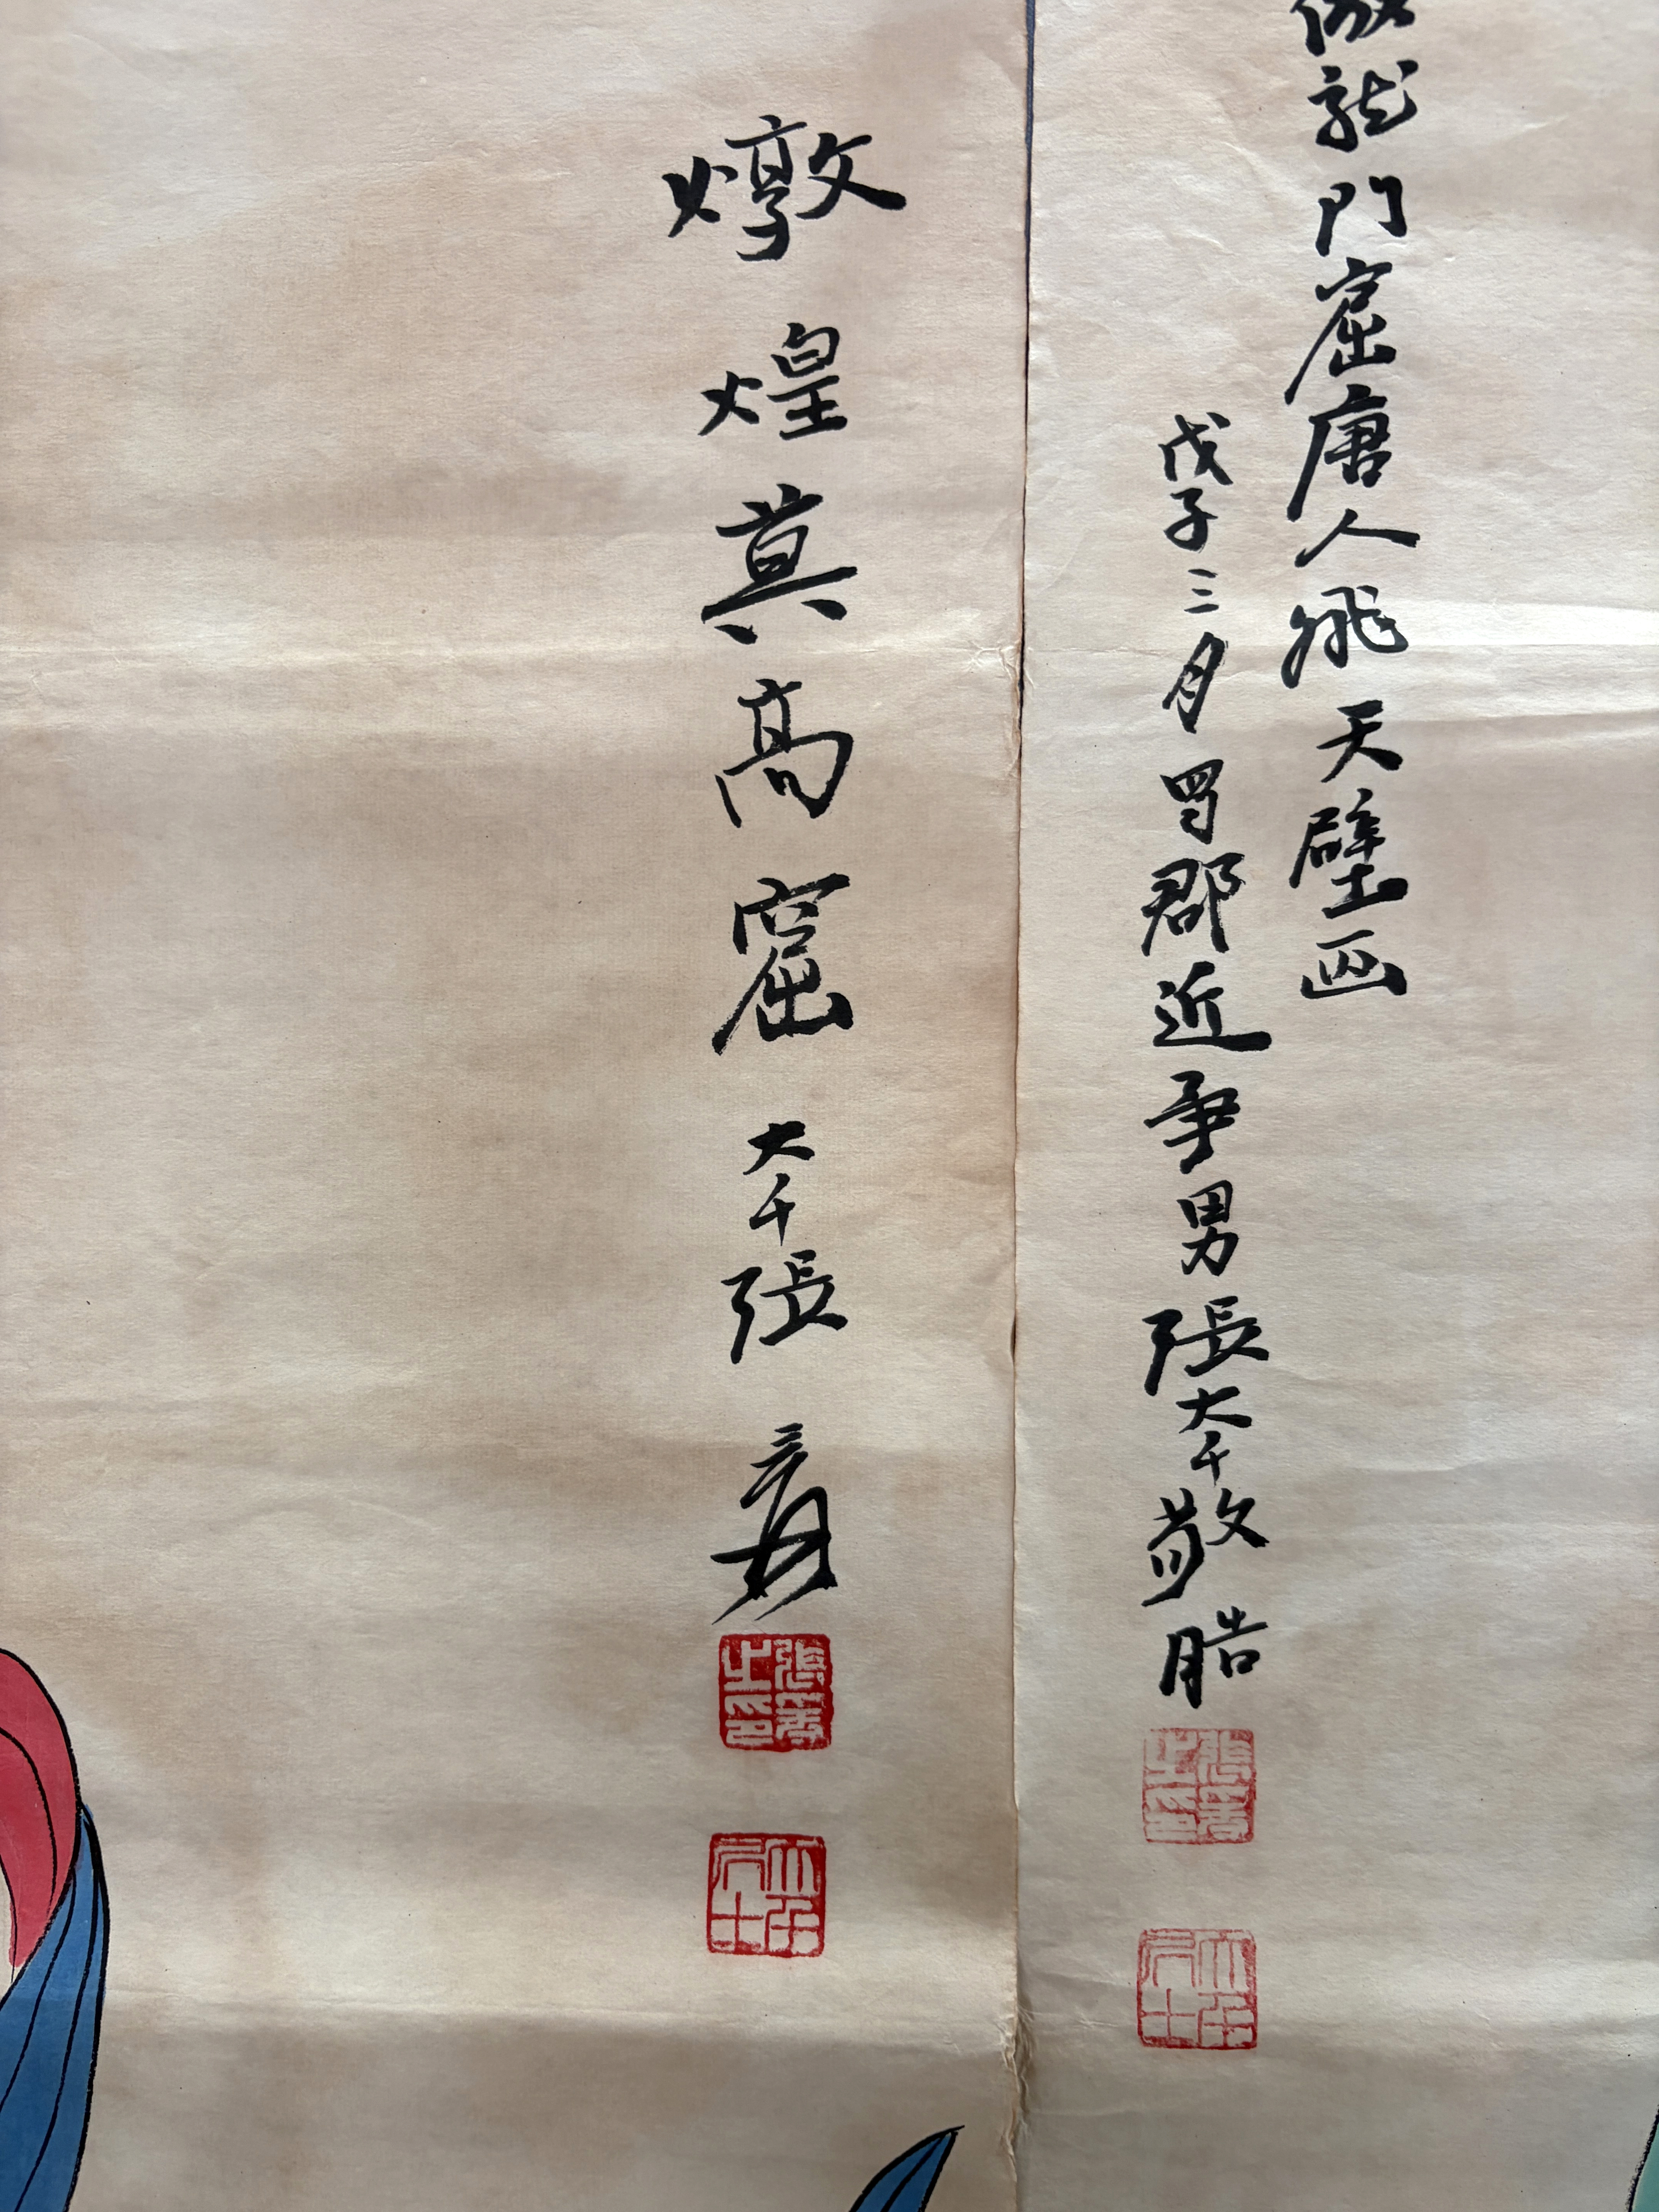 倣龍門窟唐人飛天壁画
戊子三月蜀郡近事男張大千敬艁
張爰之印
大千居士
燉煌莫高窟大千張爰
張爰之印
大千居士